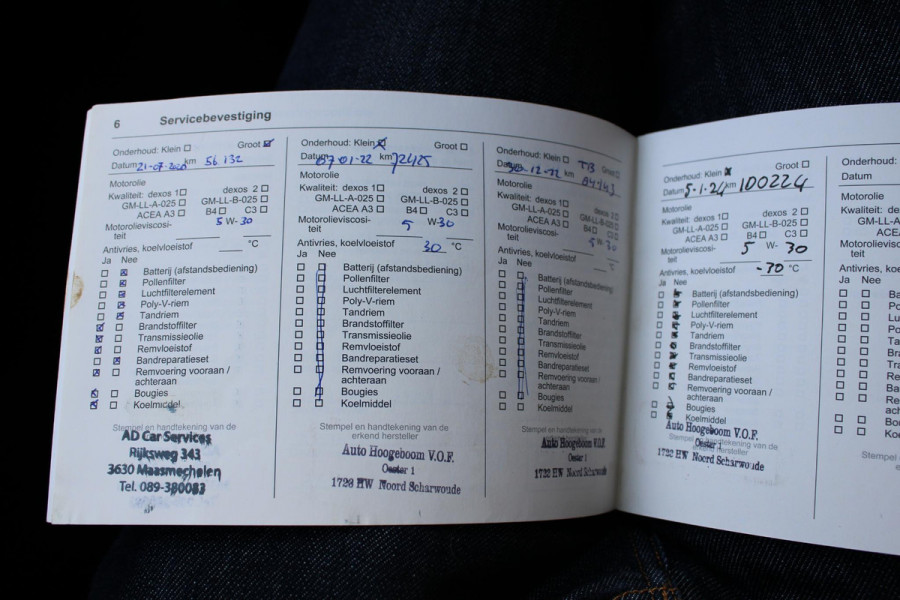 6 Servicebevestiging
Onderhoud: Klein ☐ Groot ☑
Datum 21-07-2020 km 56 132
Motorolie
Kwaliteit: dexos 1 ☐ dexos 2 ☐
GM-LL-A-025 ☐ GM-LL-B-025 ☐
ACEA A3 ☐ B4 ☐ C3 ☐
Motorolieviscosi-
teit 5 W- 30
Antivries, koelvloeistof ____ °C
Ja Nee
☐ ☑ Batterij (afstandsbediening)
☐ ☑ Pollenfilter
☐ ☑ Luchtfilterelement
☐ ☑ Poly-V-riem
☐ ☑ Tandriem
☑ ☐ Brandstoffilter
☑ ☐ Transmissieolie
☑ ☐ Remvloeistof
☐ ☑ Bandreparatieset
☑ ☐ Remvoering vooraan /
achteraan
☑ ☐ Bougies
☑ ☐ Koelmiddel
Stempel en handtekening van de
erkend hersteller
AD Car Services
Rijksweg 343
3630 Maasmechelen
Tel. 089-380083
Onderhoud: Klein ☑ Groot ☐
Datum 07-01-22 km 72425
Motorolie
Kwaliteit: dexos 1 ☐ dexos 2 ☐
GM-LL-A-025 ☐ GM-LL-B-025 ☐
ACEA A3 ☐ B4 ☐ C3 ☐
Motorolieviscosi-
teit 5 W-30
Antivries, koelvloeistof 30 °C
Ja Nee
☐ ☐ Batterij (afstandsbediening)
☐ ☐ Pollenfilter
☐ ☐ Luchtfilterelement
☐ ☐ Poly-V-riem
☐ ☐ Tandriem
☐ ☐ Brandstoffilter
☐ ☐ Transmissieolie
☐ ☐ Remvloeistof
☐ ☐ Bandreparatieset
☐ ☐ Remvoering vooraan /
achteraan
☐ ☐ Bougies
☐ ☐ Koelmiddel
Stempel en handtekening van de
erkend hersteller
Auto Hoogeboom V.O.F.
Oester 1
1723 HW Noord Scharwoude
Onderhoud: Klein ☐ Groot ☐
Datum 12-22 km
Motorolie
Kwaliteit: dexos 1 ☐ dexos 2 ☐
GM-LL-A-025 ☐ GM-LL-B-025 ☐
ACEA A3 ☐ B4 ☐ C3 ☐
Motorolieviscosi-
teit 5 W- 30
Antivries, koelvloeistof ____ °C
Ja Nee
☐ ☐ Batterij (afstandsbediening)
☐ ☐ Pollenfilter
☐ ☐ Luchtfilterelement
☐ ☐ Poly-V-riem
☐ ☐ Tandriem
☐ ☐ Brandstoffilter
☐ ☐ Transmissieolie
☐ ☐ Remvloeistof
☐ ☐ Bandreparatieset
☐ ☐ Remvoering vooraan /
achteraan
☐ ☐ Bougies
☐ ☐ Koelmiddel
Stempel en handtekening van de
erkend hersteller
Auto Hoogeboom V.O.F.
Oester 1
1723 HW Noord Scharwoude
Onderhoud: Klein ☒ Groot ☐
Datum 5-1-24 km 100224
Motorolie
Kwaliteit: dexos 1 ☐ dexos 2 ☐
GM-LL-A-025 ☐ GM-LL-B-025 ☐
ACEA A3 ☐ B4 ☐ C3 ☐
Motorolieviscosi-
teit 5 W- 30
Antivries, koelvloeistof -70 °C
Ja Nee
☐ ☒ Batterij (afstandsbediening)
☐ ☒ Pollenfilter
☐ ☒ Luchtfilterelement
☐ ☒ Poly-V-riem
☐ ☒ Tandriem
☐ ☒ Brandstoffilter
☐ ☒ Transmissieolie
☐ ☒ Remvloeistof
☐ ☒ Bandreparatieset
☐ ☒ Remvoering vooraan /
achteraan
☐ ☒ Bougies
☐ ☒ Koelmiddel
Stempel en handtekening van de
erkend hersteller
Auto Hoogeboom V.O.F.
Oester 1
1723 HW Noord Scharwoude
Onderhoud: Klein ☐
Datum
Motorolie
Kwaliteit: d
GM-LL-
ACE
Motorolievisco
teit
Antivries, koe
Ja Nee
☐ ☐ Ba
☐ ☐ Po
☐ ☐ Lu
☐ ☐ Po
☐ ☐ Ta
☐ ☐ Br
☐ ☐ Tra
☐ ☐ Re
☐ ☐ Ba
☐ ☐ Re
ach
☐ ☐ Bo
☐ ☐ Ko
Stempel
e